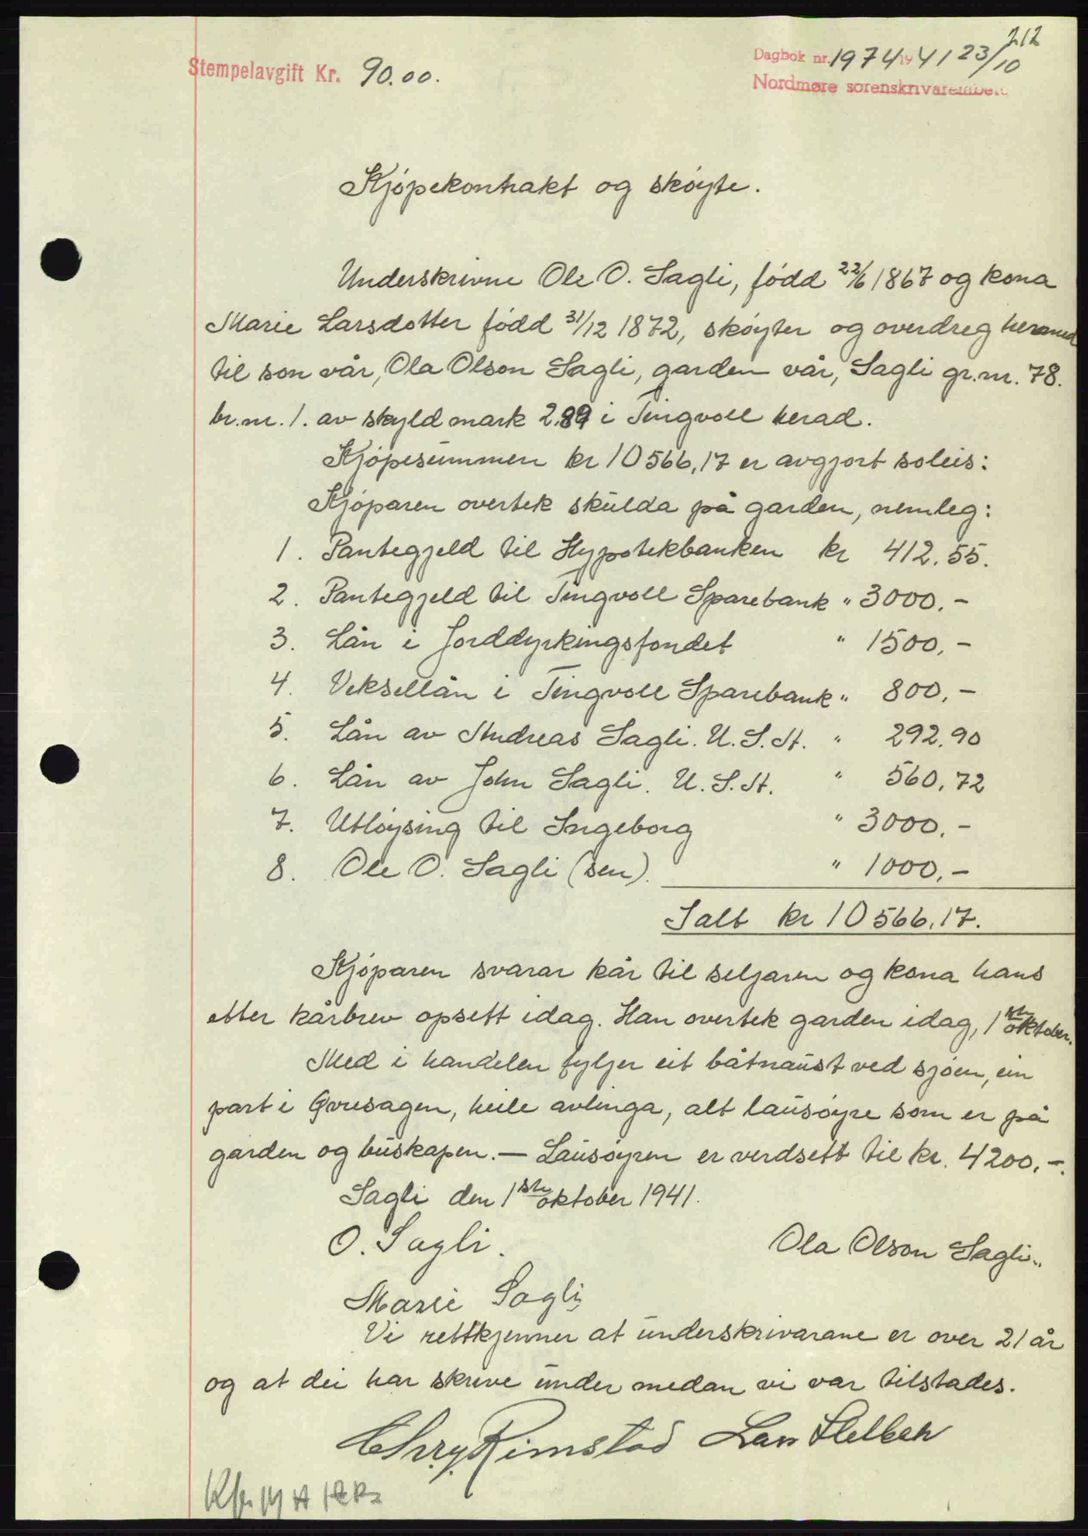 212
Stempelavgift Kr. 90.00.
Dagbok nr. 1974 1941 23/10
Nordmøre sorenskrivarembete
Kjøpekontrakt og skøyte.
Underskrivne Ole O. Sagli, fødd 22/6 1867 og kona
Marie Larsdotter fødd 31/12 1872, skøyter og overdreg hermed
til son vår, Ola Olson Sagli, garden vår, Sagli gr.nr. 78.
br.nr. 1. av skyld mark 2.89 i Tingvoll herad.
Kjøpesummen kr 10566,17 er avgjort soleis:
Kjøparen overtek skulda på garden, nemleg:
1. Pantegjeld til Hypotekbanken kr 412.55.
2. Pantegjeld til Tingvoll Sparebank " 3000.-
3. Lån i Jorddyrkingsfondet " 1500,-
4. Veksellån i Tingvoll Sparebank " 800,-
5. Lån av Andreas Sagli. U.S.A. " 292.90
6. Lån av John Sagli. U.S.A. " 560,72
7. Utløysing til Ingeborg " 3000.-
8. Ole O. Sagli (sen). " 1000,-
Ialt kr 10566,17.
Kjøparen svarar kår til seljaren og kona hans
etter kårbrev opsett idag. Han overtek garden idag, 1ste oktober.
Med i handelen fyljer eit båtnaust ved sjøen, ein
part i Øvresagen, heile avlinga, alt lausøyre som er på
garden og buskapen. — Lausøyren er verdsett til kr. 4200,-.
Sagli den 1ste oktober 1941.
O. Sagli.
Ola Olson Sagli..
Marie Sagli
Vi rettkjenner at underskrivarane er over 21 år
og at dei har skrive under medan vi var tilstades.
Chr. Rimstad Lars